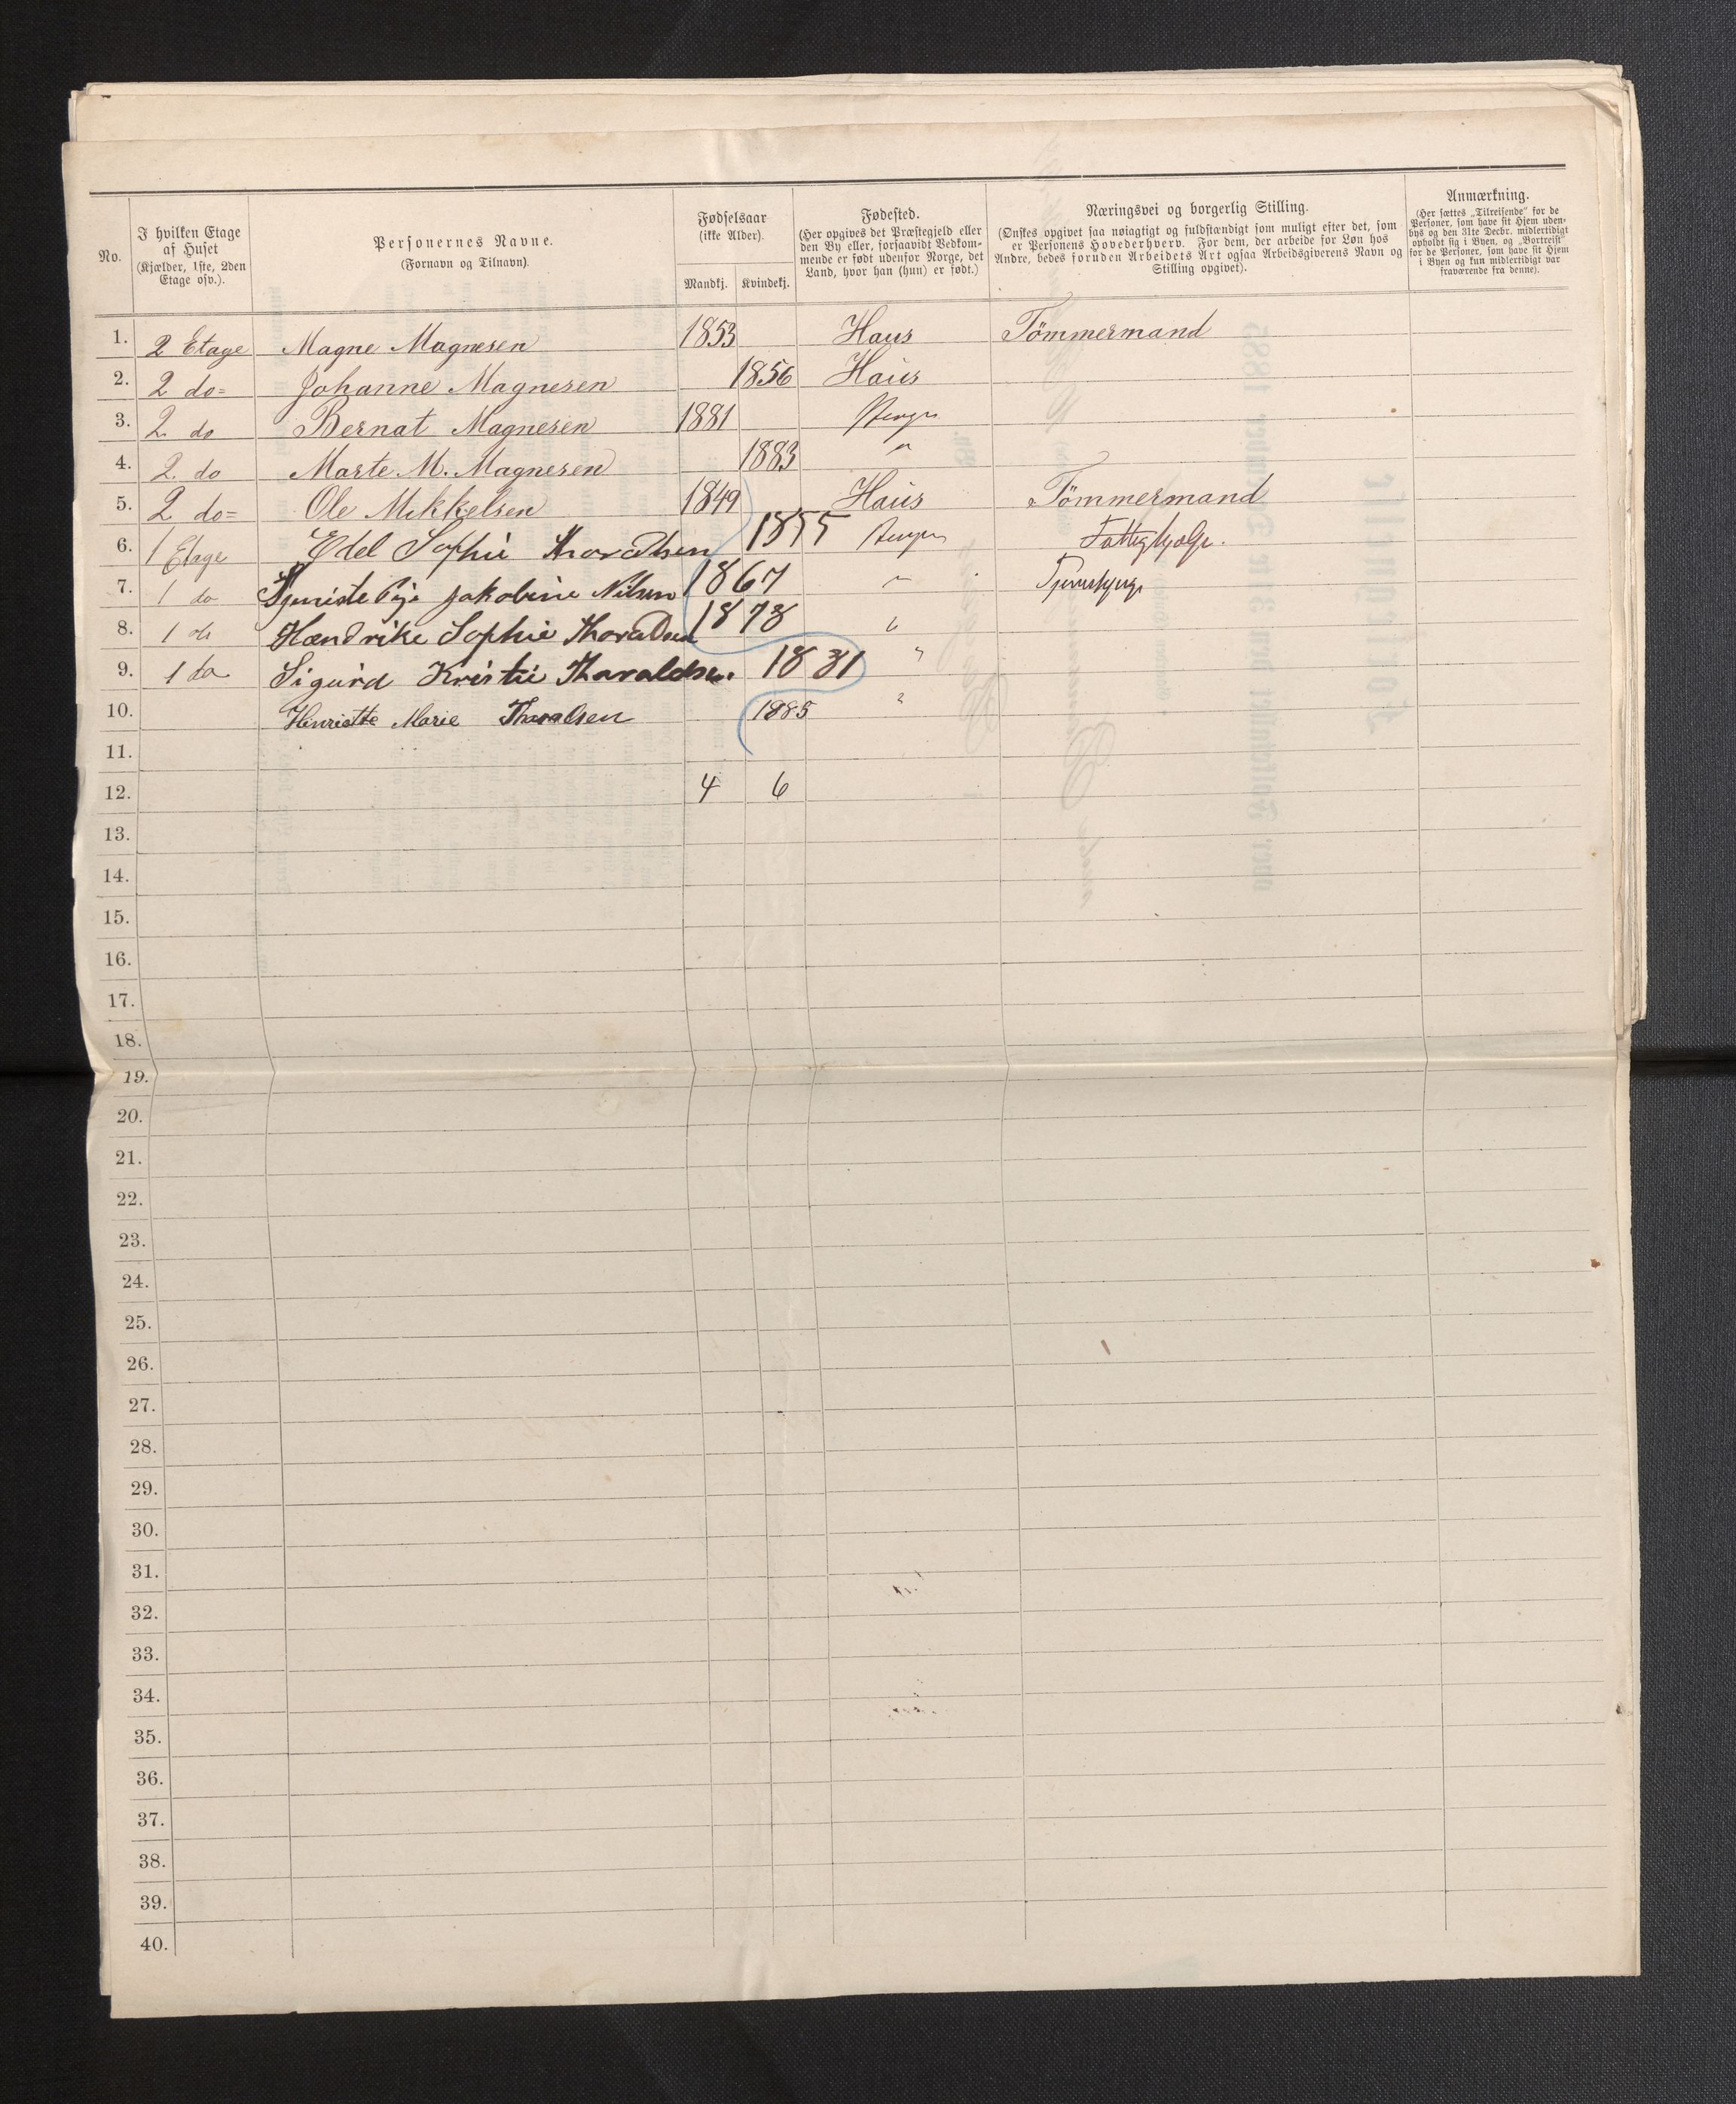 No.
I hvilken Etage
af Huset
(Kjælder, 1ste, 2den
Etage osv.).
Personernes Navne.
(Fornavn og Tilnavn).
Fødselsaar
(ikke Alder).
Mandkj. Kvindekj.
Fødested.
(Her opgives det Præstegjeld eller
den By eller, forsaavidt Vedkom-
mende er født udenfor Norge, det
Land, hvor han (hun) er født.)
Næringsvei og borgerlig Stilling.
(Ønskes opgivet saa nøiagtigt og fuldstændigt som muligt efter det, som
er Personens Hovederhverv. For dem, der arbeide for Løn hos
Andre, bedes foruden Arbeidets Art ogsaa Arbeidsgiverens Navn og
Stilling opgivet).
Anmærkning.
(Her sættes „Tilreisende" for de
Personer, som have sit Hjem uden-
bys og den 31te Decbr. midlertidigt
opholdt sig i Byen, og „Bortreist"
for de Personer, som have sit Hjem
i Byen og kun midlertidigt var
fraværende fra denne).
1. 2 Etage Magne Magnesen 1853 Haus Tömmermand
2. 2 do= Johanne Magnesen 1856 Haus
3. 2 do Bernat Magnesen 1881 Bergen
4. 2 do Marte M. Magnesen 1883 "
5. 2 do= Ole Mikkelsen 1849 Haus Tömmermand
6. 1 Etage Edel Sophie Thoraldsen 1855 Bergen Fattighjælp.
7. 1 do Jakobine Nilsen 1867 "
8. 1 do Hændrike Sophie 1878 "
9. 1 do Sigurd Kristie Tharaldsen 1881 "
10. Henriette Marie Tharalsen 1885 "
11.
12. 4 6
13.
14.
15.
16.
17.
18.
19.
20.
21.
22.
23.
24.
25.
26.
27.
28.
29.
30.
31.
32.
33.
34.
35.
36.
37.
38.
39.
40.